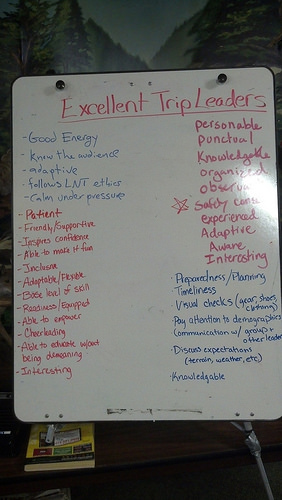 Excellent Trip Leaders
- Good Energy
- Know the audience
- adaptive
- follows LNT ethics
- Calm under pressure
- Patient
- Friendly/Supportive
- Inspires confidence
- Able to make it fun
- Inclusive
- Adaptable/Flexible
- Base level of skill
- Readiness/Equipped
- Able to empower
- Cheerleading
- Able to educate w/out
being demeaning
- Interesting
Personable
Punctual
Knowledgable
organized
observa
Safety cons
experienced
Adaptive
Aware
Interesting
- Preparedness/Planning
- Timeliness
- Visual checks (gear, shoes,
clothing)
- Pay attention to demographics
- Communication w/ group +
other leader
- Discuss expectations
(terrain, weather, etc.)
- Knowledgable